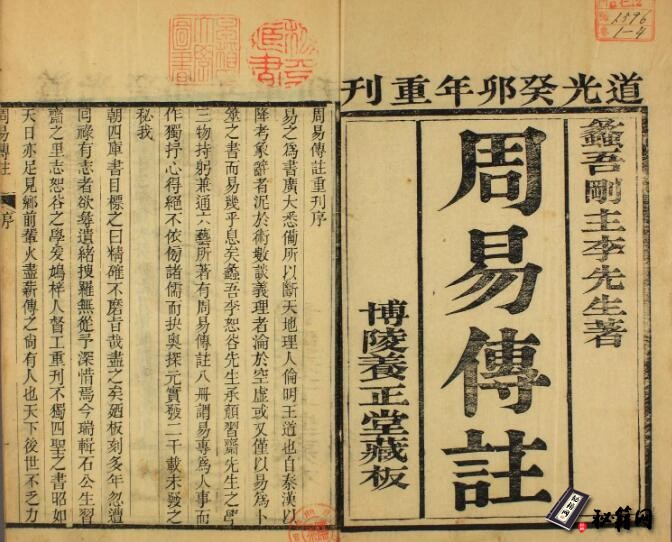 道光癸卯年重刊
蠡吾剛主李先生著
周易傳註
博陵養正堂藏板
1596
1-4
周易傳註重刊序
易之為書廣大悉備所以斷天地理人倫明王道也自秦漢以
降考象辭者泥於術數談義理者淪於空虛或又僅以易為卜
筮之書而易幾乎息矣蠡吾李恕谷先生承顏習齋先生之學
三物持躬兼通六藝所著有周易傳註八冊謂易專為人事而
作獨抒心得絕不依傍諸儒而抉奧探元實發二千載未發之
秘我
朝四庫書目標之曰精確不磨旨哉盡之矣廼板刻多年忽遭
回祿有志者欲尋遺緒搜羅無從予深惜焉今瑞輯石公生習
齋之里志恕谷之學爰鳩梓人督工重刊不獨四聖之書昭如
天日亦足見鄉前輩火盡薪傳之尚有人也天下後世不乏力
周易傳註
序
秘籍网